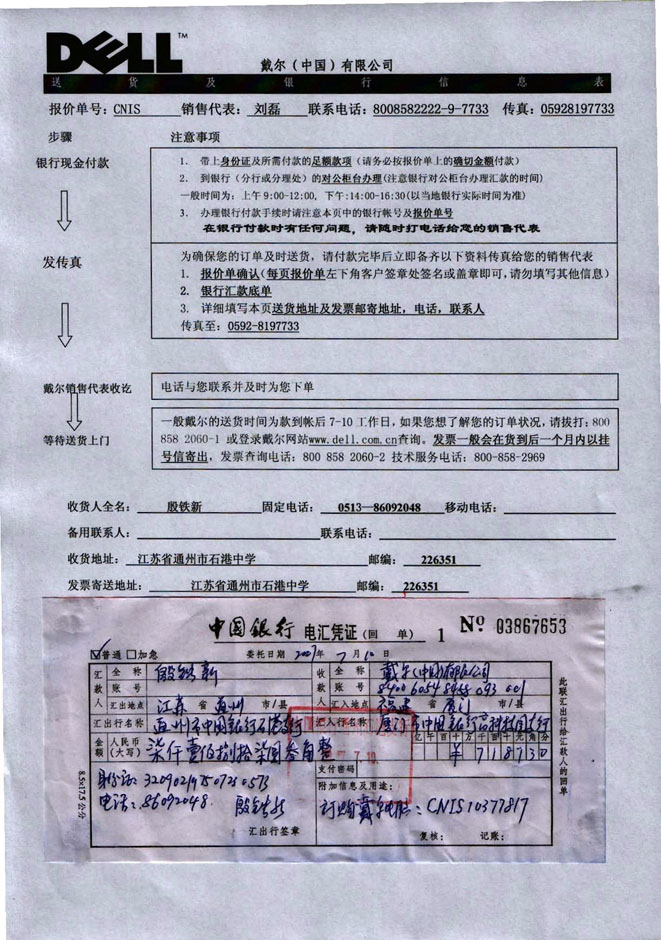 DELL™
戴尔（中国）有限公司
送 货 及 银 行 信 息 表
报价单号：CNIS 销售代表：刘磊 联系电话：8008582222-9-7733 传真：05928197733
步骤 注意事项
银行现金付款
1. 带上身份证及所需付款的足额款项（请务必按报价单上的确切金额付款）
2. 到银行（分行或分理处）的对公柜台办理(注意银行对公柜台办理汇款的时间)
一般时间为：上午9:00-12:00, 下午:14:00-16:30(以当地银行实际时间为准)
3. 办理银行付款手续时请注意本页中的银行帐号及报价单号
在银行付款时有任何问题，请随时打电话给您的销售代表
发传真
为确保您的订单及时送货，请付款完毕后立即备齐以下资料传真给您的销售代表
1. 报价单确认(每页报价单左下角客户签章处签名或盖章即可,请勿填写其他信息)
2. 银行汇款底单
3. 详细填写本页送货地址及发票邮寄地址，电话，联系人
传真至：0592-8197733
戴尔销售代表收讫
电话与您联系并及时为您下单
等待送货上门
一般戴尔的送货时间为款到帐后7-10工作日,如果您想了解您的订单状况，请拨打：800
858 2060-1 或登录戴尔网站www.dell.com.cn查询。发票一般会在货到后一个月内以挂
号信寄出，发票查询电话：800 858 2060-2 技术服务电话：800-858-2969
收货人全名： 殷铁新 固定电话： 0513—86092048 移动电话：
备用联系人： 联系电话：
收货地址： 江苏省通州市石港中学 邮编： 226351
发票寄送地址： 江苏省通州市石港中学 邮编： 226351
中国银行 电汇凭证（回 单） 1 Nº 03867653
普通 加急 委托日期 2007年 7月 10日
汇款人 全称 殷铁新 收款人 全称 戴尔(中国)有限公司
账号 账号 840060548468093001
汇出地点 江苏 省 通州 市/县 汇入地点 福建 省 厦门 市/县
汇出行名称 通州市中国银行石港行 汇入行名称 厦门市中国银行高科技园支行
金额 人民币（大写） 柒仟壹佰捌拾柒圆叁角整 亿千百十万千百十元角分
¥718730
支付密码
身份证：320902197507250573 附加信息及用途：
电话：86092048. 殷铁新 订购戴尔电脑：CNIS10377817
汇出行签章 复核： 记账：
8.5×17.5 公分
此联汇出行给汇款人的回单